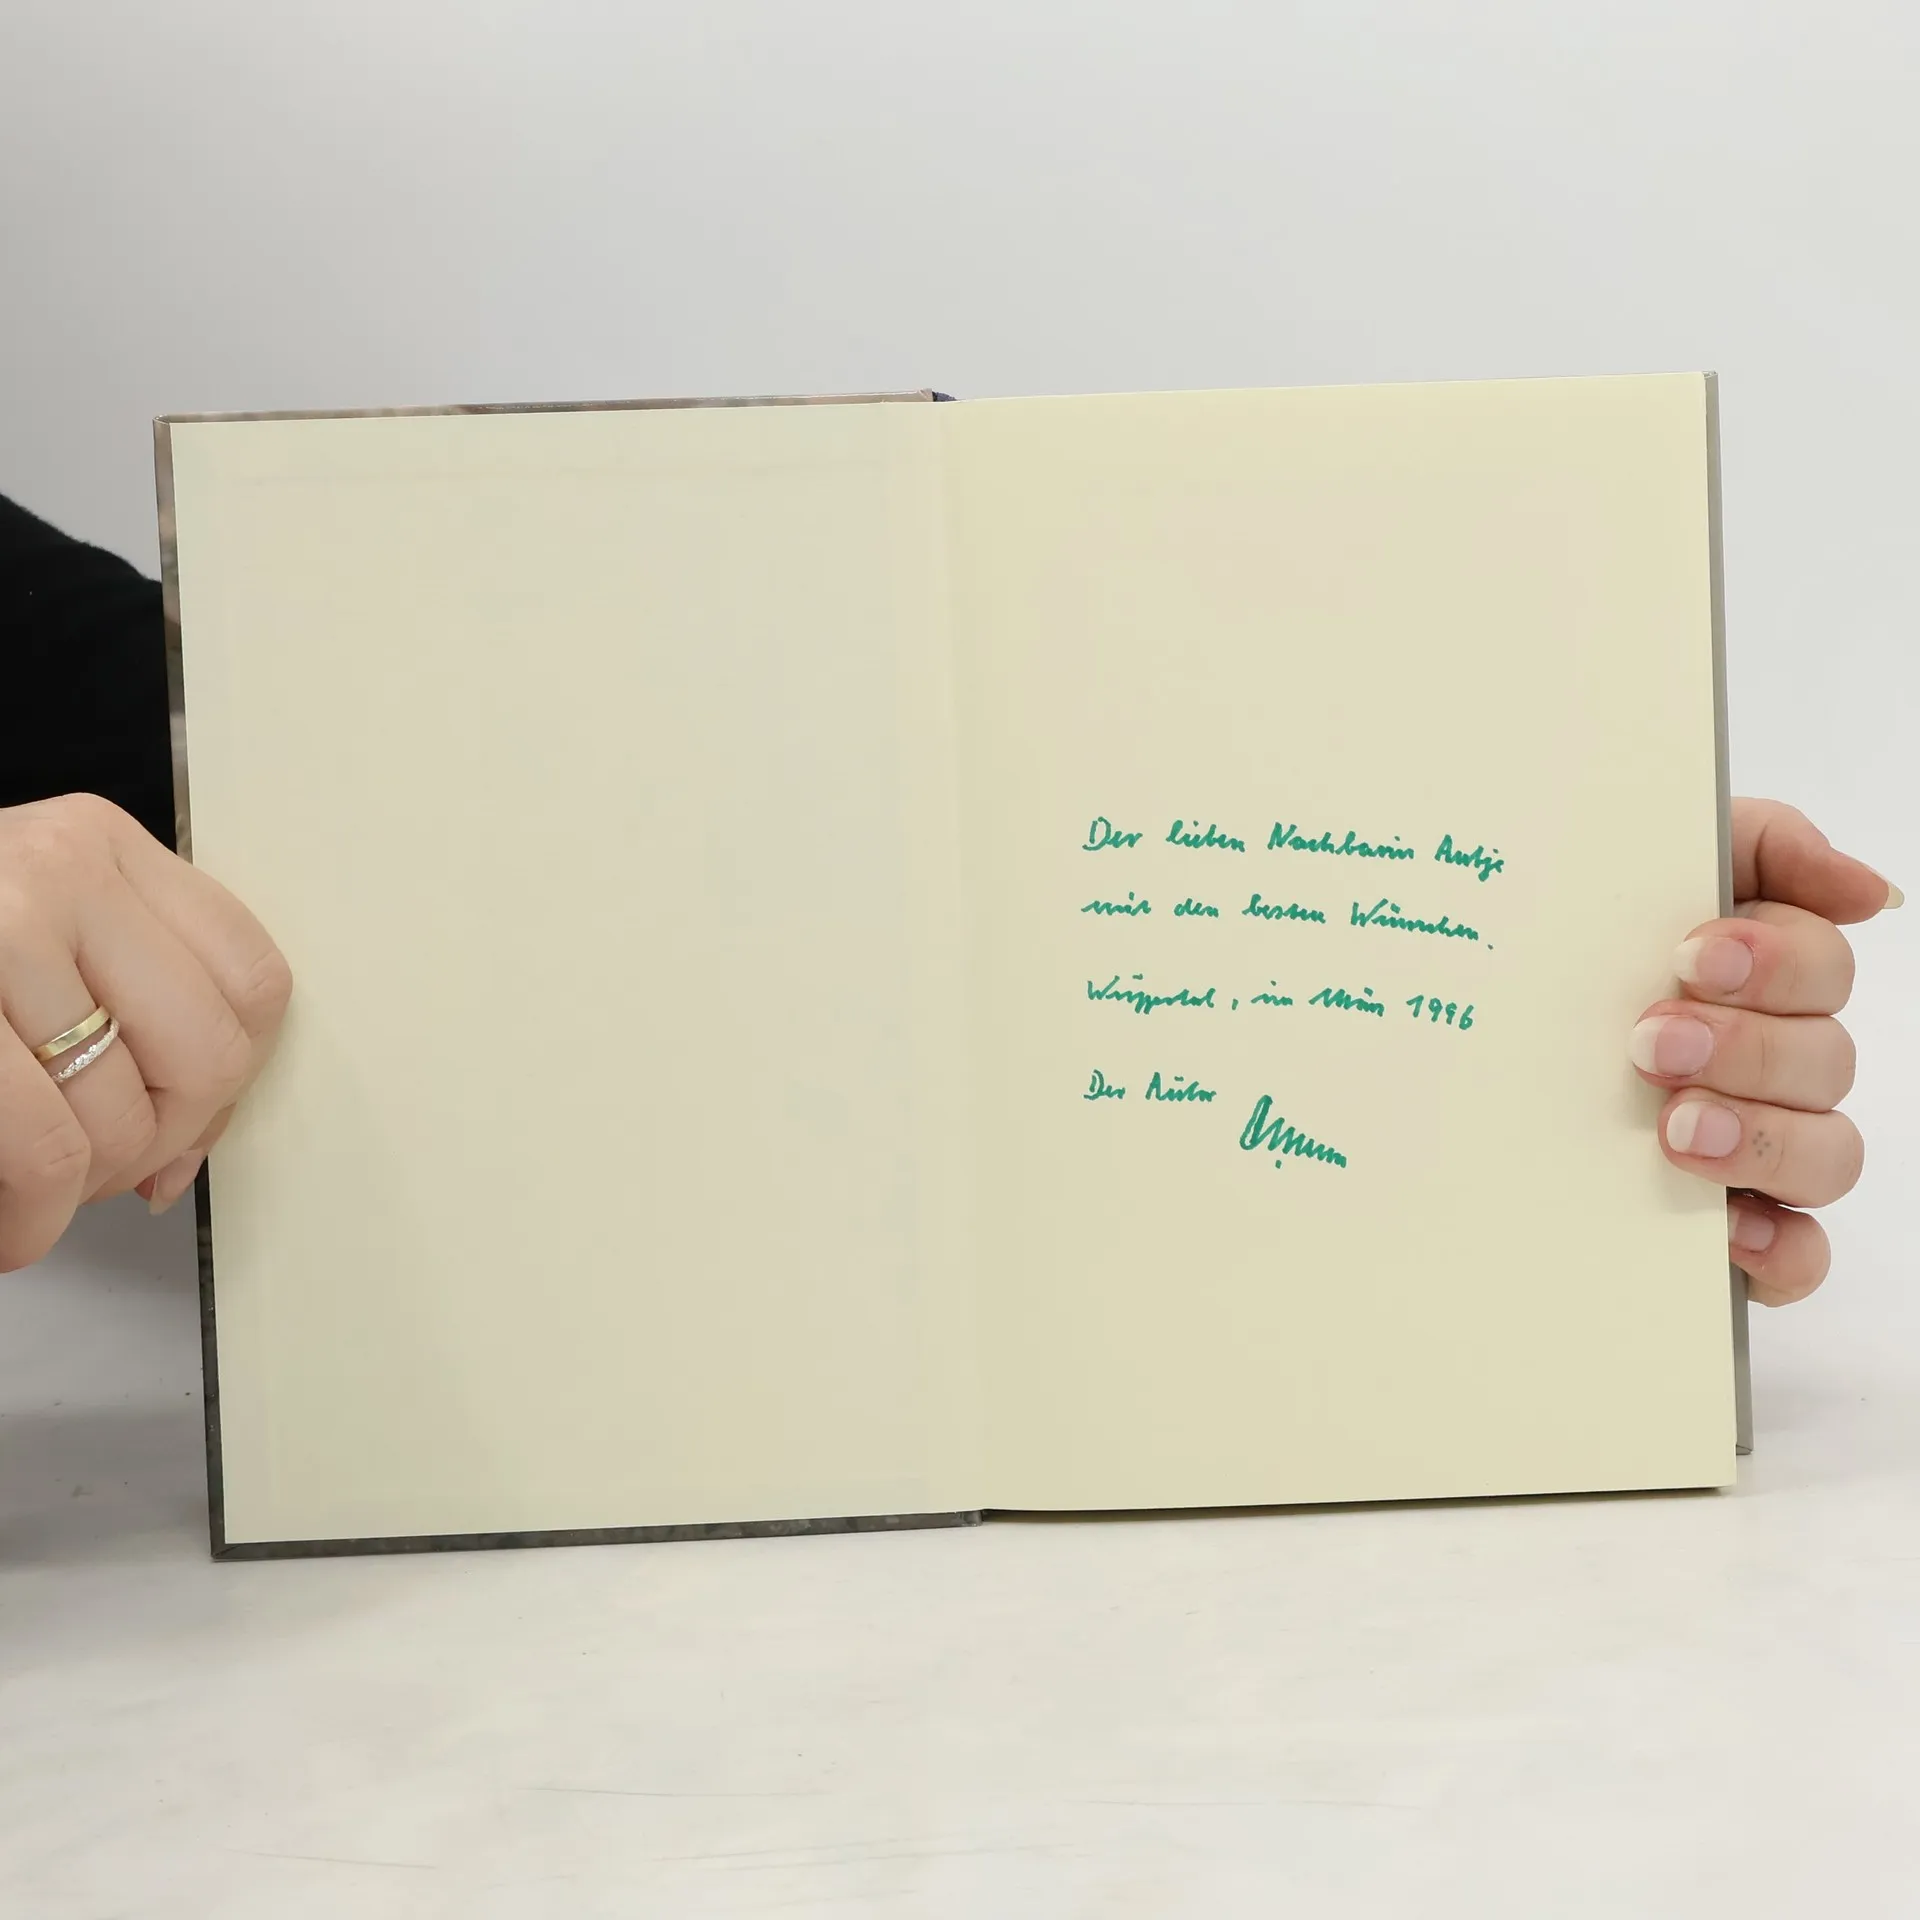 Der lieben Nachbarin Antje
mit den besten Wünschen.
Wuppertal, im März 1996
Der Autor